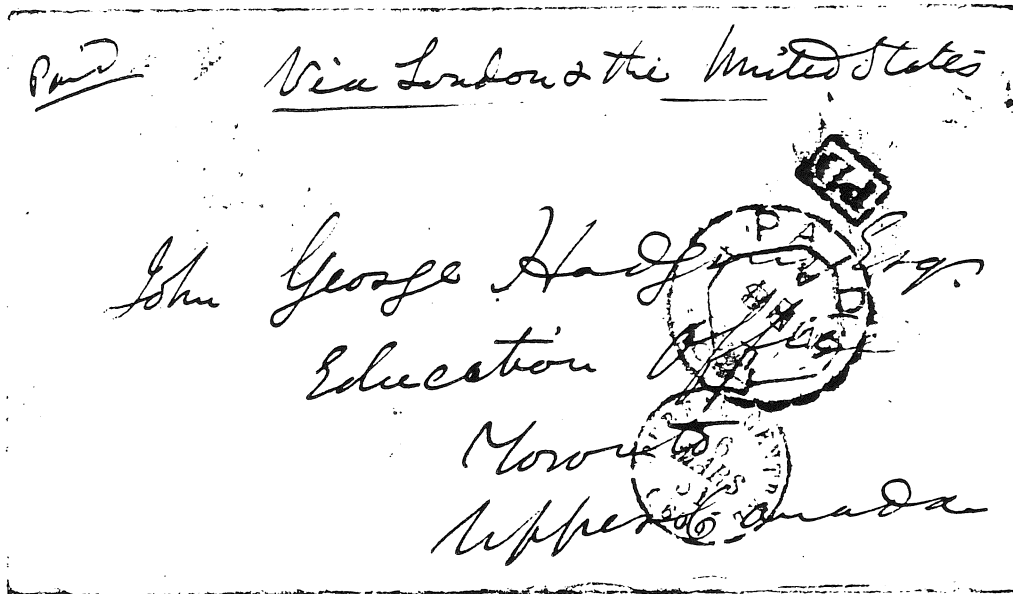 Paid
Via London & the United States
Pd
John George Hodgins Esq.
PAID
Education Office
Toronto
MARS
Upper Canada